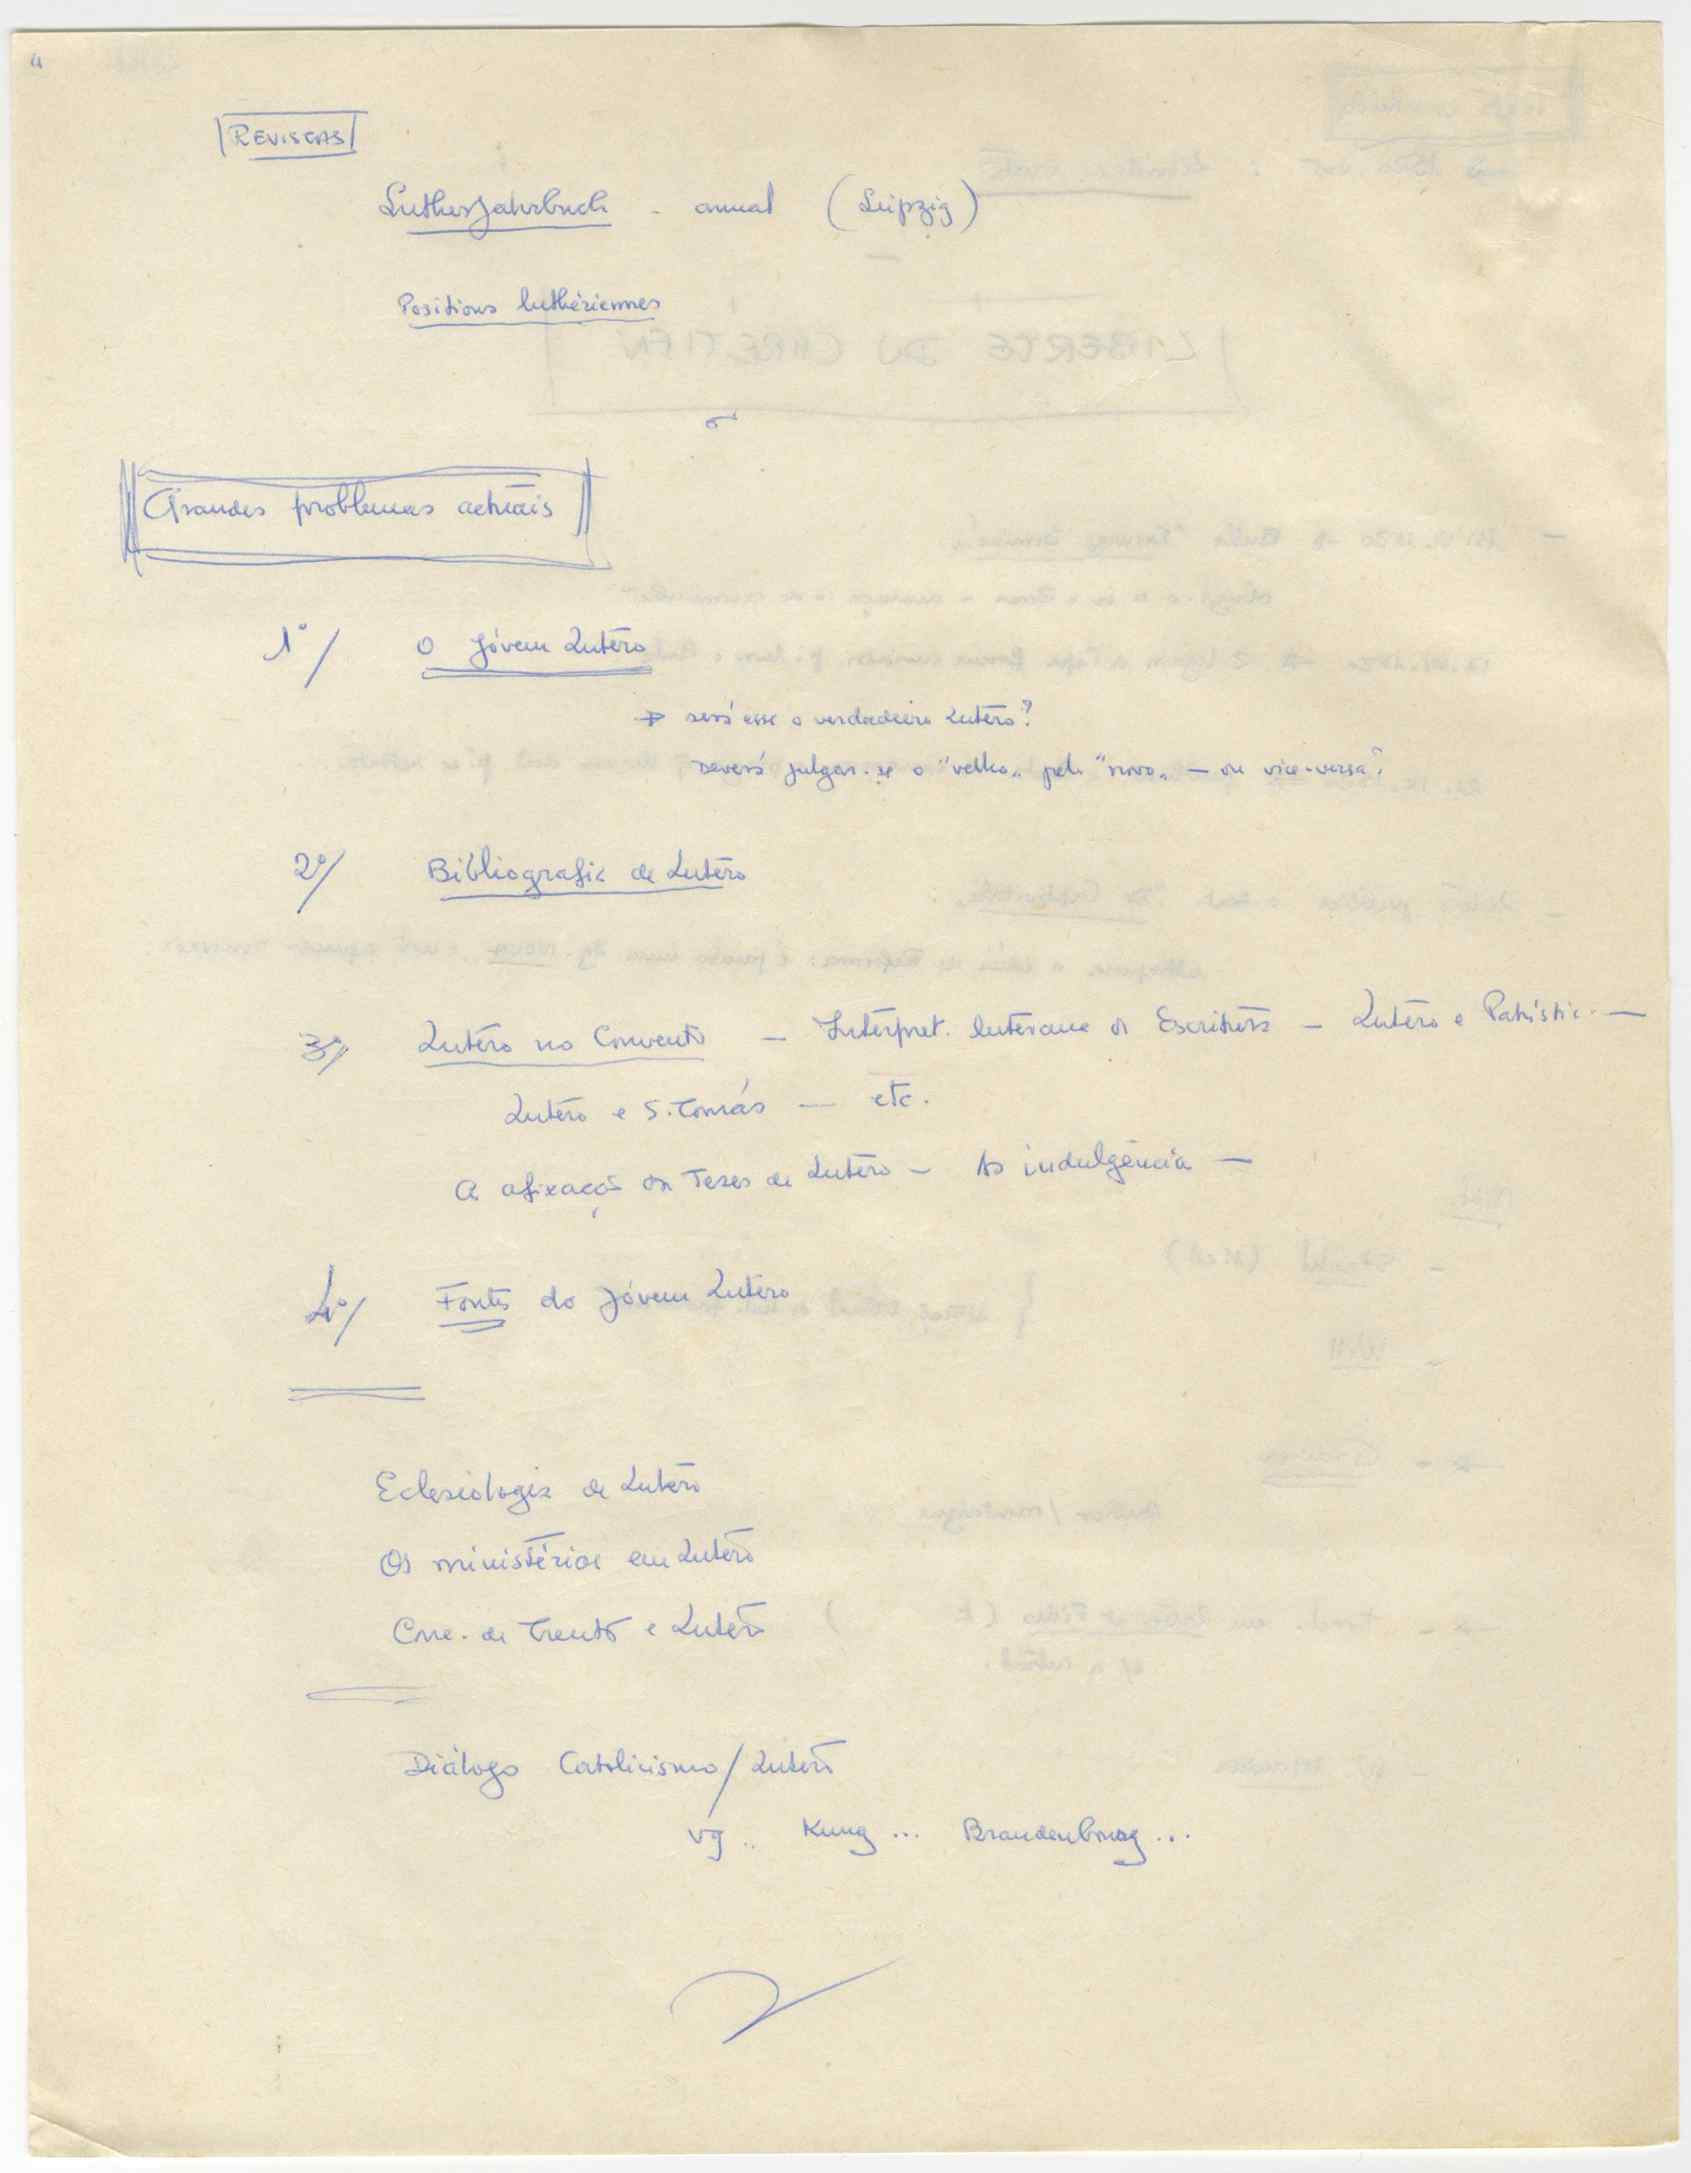 4
REVISTAS
Luther Jahrbuch - anual (Leipzig)
Positions luthériennes
Grandes problemas actuais
1º/ O Jóvem Lutero
será esse o verdadeiro Lutero?
Deverá julgar-se o "velho" pelo "novo" — ou vice-versa?
2º/ Bibliografia de Lutero
3º/ Lutero no Convento — Interpret. luterana da Escritura — Lutero e Patrística —
Lutero e S. Tomás — etc.
A afixação das Teses de Lutero — As indulgência —
4º/ Fontes do Jóvem Lutero
Eclesiologia de Lutero
Os ministérios em Lutero
Conc. de Trento e Lutero
Diálogo Catolicismo/Lutero
vg.. Kung ... Brandenburg ...